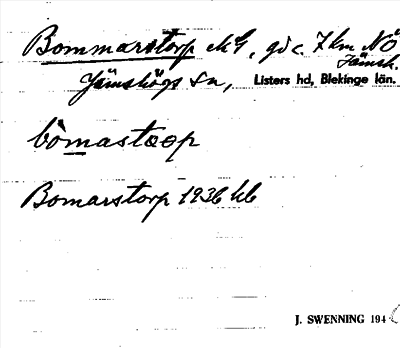 Bommarstorp hG, gd c. 7 km NÖ
Jämsh.
Jämshögs sn, Listers hd, Blekinge län.
bòmastorp
Bomarstorp 1936 kb
J. SWENNING 194